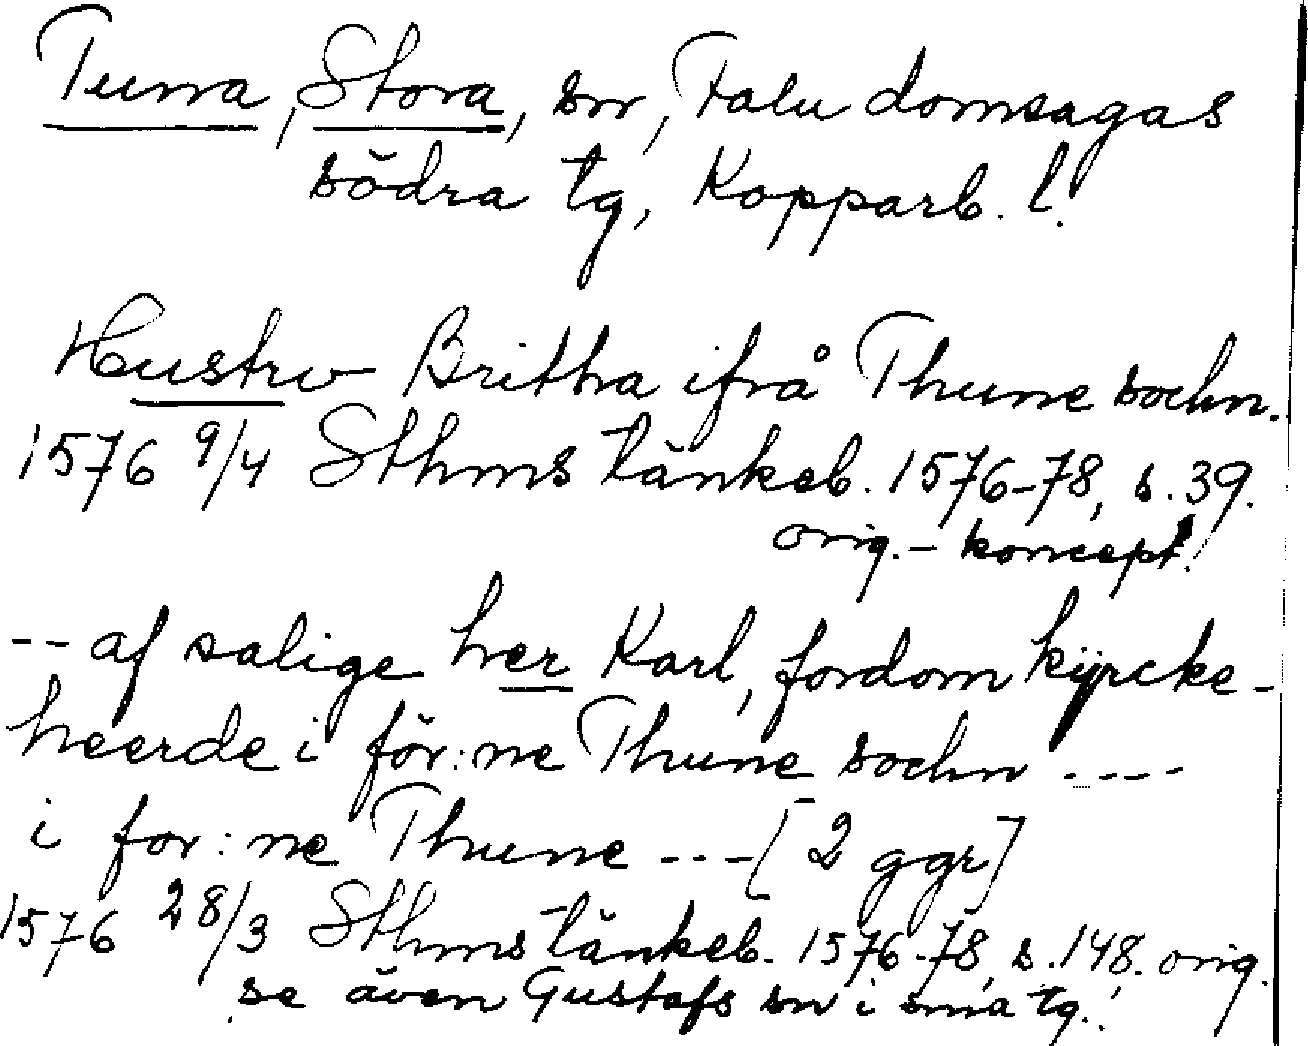 Tuna, Stora, sn, Falu domsagas
södra tg, Kopparb. l.
Hustrv Brittha ifrå Thune sochn.
1576 9/4 Sthms tänkeb. 1576-78, s. 39.
orig. - koncept!
-- af salige her Karl, fordom kyrcke-
heerde i för:ne Thune sochn ----
i for:ne Thune --- [2 ggr]
1576 28/3 Sthms tänkeb. 1576-78, s. 148. orig.
se även Gustafs sn i sma tg.!